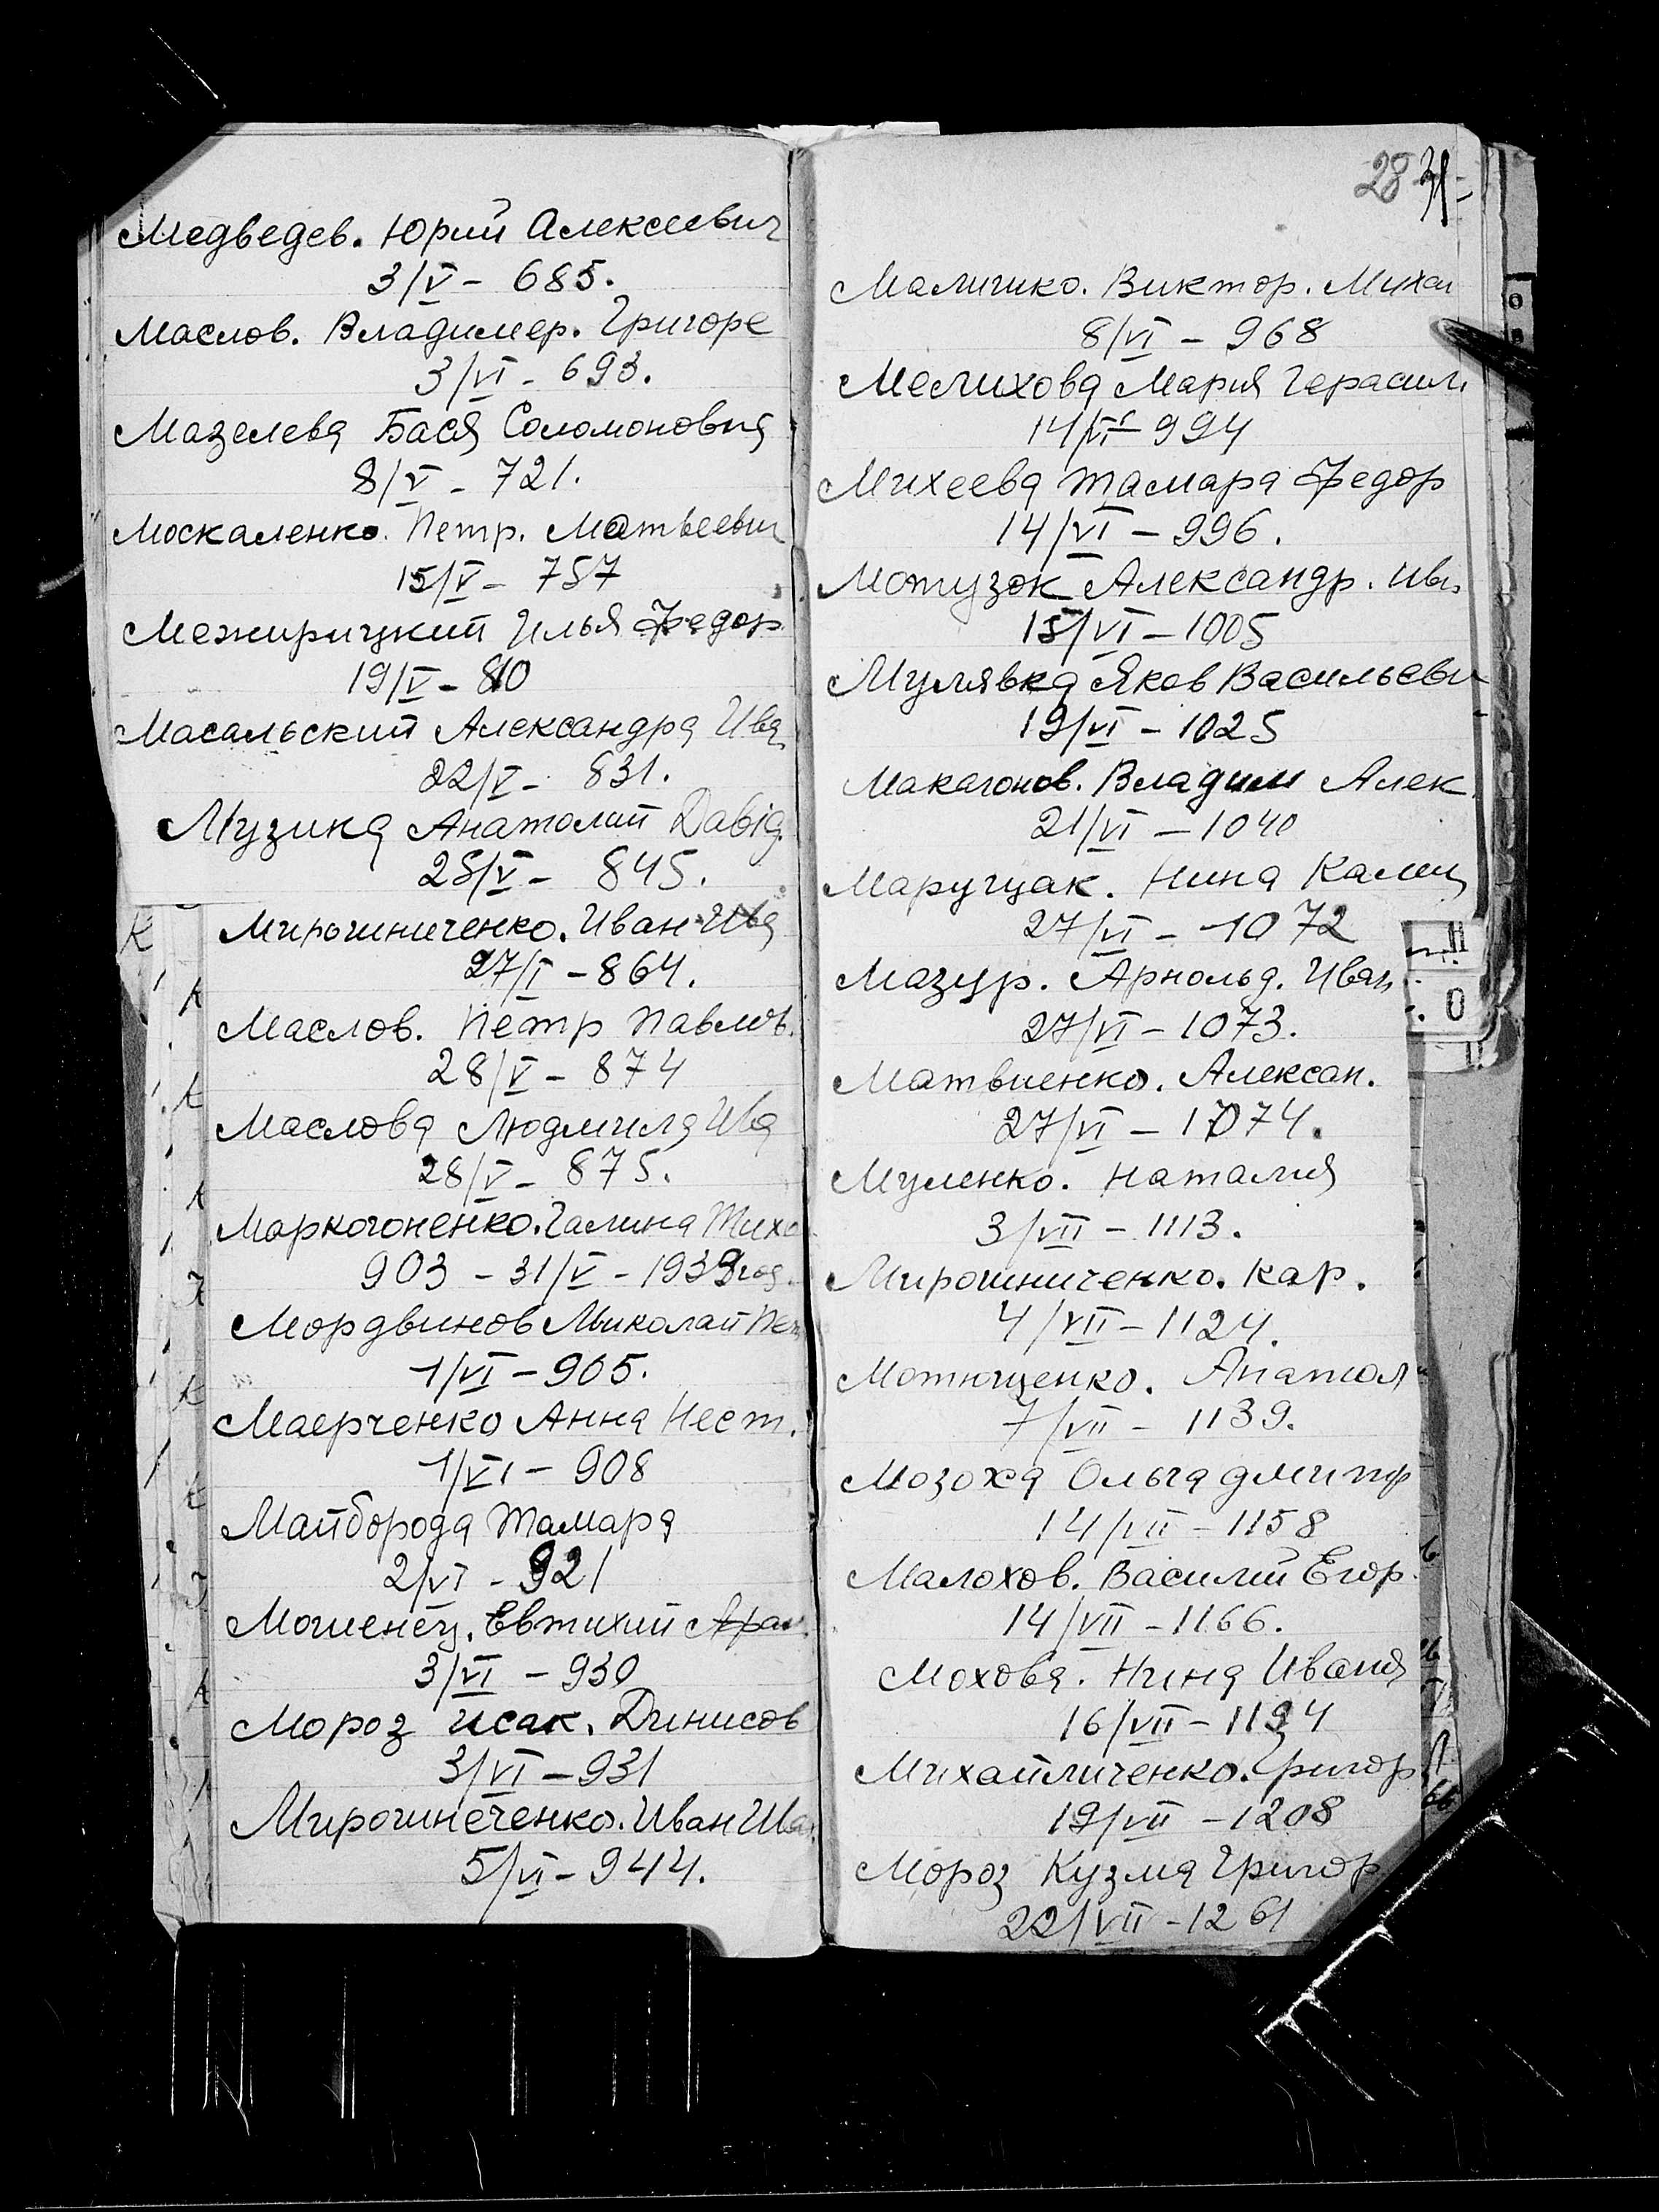 Медведев. Юрий Алексеевич
3/V - 685.
Маслов. Владимер. Григоре
3/VI - 693.
Мазелева Бася Соломоновна
8/V - 721.
Москаленко. Петр. Матвеевич
15/V - 757
Межирицкий Илья Федор
19/V - 810
Масальский Александра Ива
22/V - 831.
Музика Анатолий Давід.
28/V - 845.
Мирошниченко. Иван Ива
27/I - 864.
Маслов. Петр Павлов.
28/V - 874
Маслова Людмила Ива
28/V - 875.
Маркогоненко. Галина Тихо
903 - 31/V - 1939 год.
Мордвинов Миколай Пет
1/VI - 905.
Маерченко Анна Нест.
1/VI - 908
Майборода Тамара
2/VI - 921
Мошенец. Евтихий
3/VI - 930
Мороз Исак. Динисов
3/VI - 931
Мирошнеченко. Иван Ива
5/VI - 944.
28
Маличко. Виктор. Михаи
8/VI - 968
Мелихова Мария Герасим
14/VI - 994
Михеева Тамара Федор
14/VI - 996.
Мотузок Александр. Ив.
15/VI - 1005
Мулявка Яков Васильеви
19/VI - 1025
Макагонов. Владим Алек
21/VI - 1040
Маругцак. Нина Калин
27/VI - 1072
Мазур. Арнольд. Иван
27/VI - 1073.
Матвиенко. Алексан.
27/VI - 1074.
Муленко. Наталия
3/VII - 1113.
Мирошниченко. Кар.
4/VII - 1124.
Мотющенко. Анатол
7/VII - 1139.
Мозоха Ольга дмитр
14/VII - 1158
Малохов. Василий Егор.
14/VII - 1166.
Мохова. Нина Ивана
16/VII - 1194
Михайличенко. Григор
19/VII - 1208
Мороз Кузма Григор
22/VII - 1261